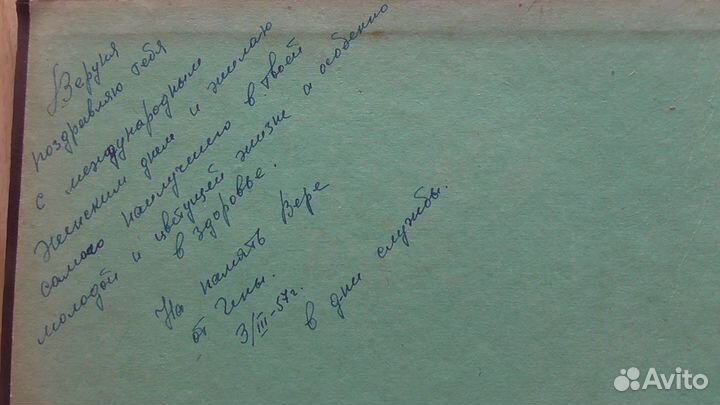 Веруня
поздравляю тебя
с международным
женским днем и желаю
самого наилучшего в твоей
молодой и цветущей жизни и особенно
в здоровье.
На память Вере
от Инны.
3/III-57г.
в дни службы.
Avito